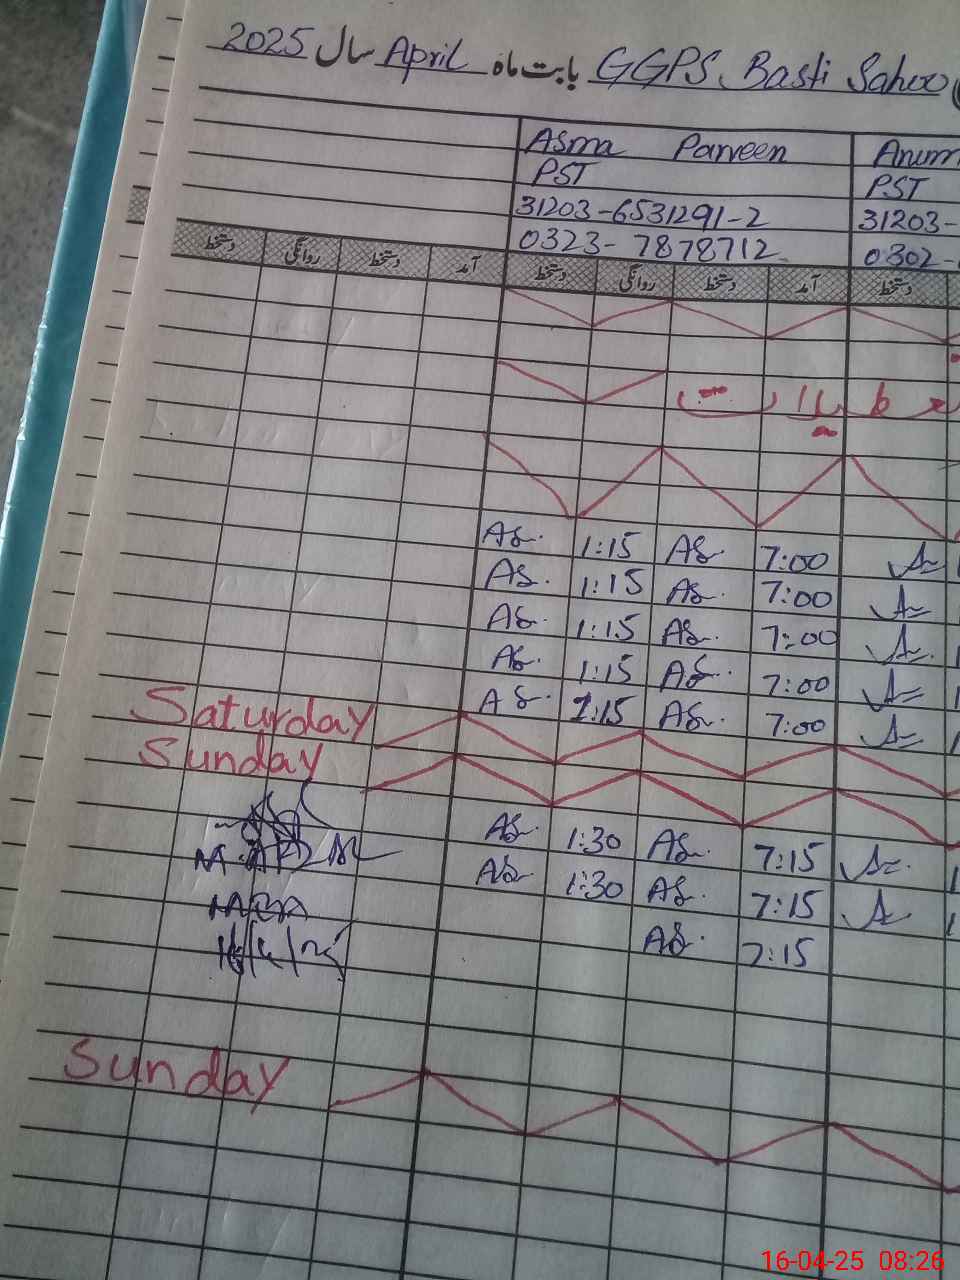 بابت ماہ April سال 2025 GGPS Basti Sahoo
Asma Parveen
PST
31203-6531291-2
0323-7878712
Anum
PST
31203-
0302-
دستخط روانگی دستخط آمد دستخط روانگی دستخط آمد دستخط
AS. 1:15 AS 7:00
AS. 1:15 AS. 7:00
AS. 1:15 AS. 7:00
AS. 1:15 AS. 7:00
AS. 1:15 AS. 7:00
Saturday
Sunday
AS. 1:30 AS. 7:15
AS 1:30 AS. 7:15
AS. 7:15
16/4/25
Sunday
16-04-25 08:26